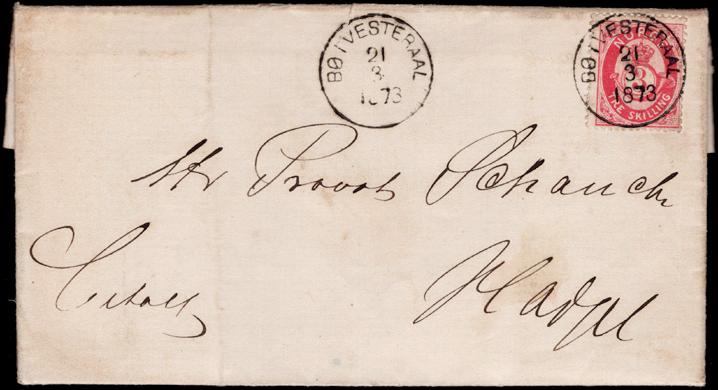 BØ I VESTERAAL
21
3
1873
BØ I VESTERAAL
21
3
1873
NORGE
3
TRE SKILLING
Hr Provst Schanche
Hadsel